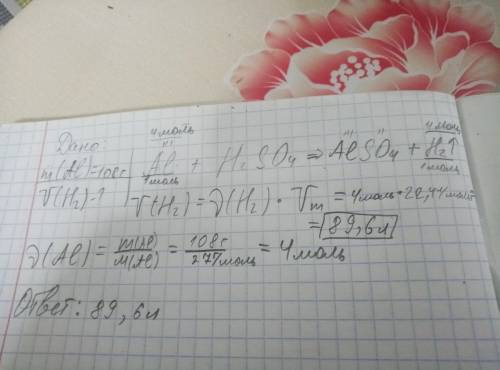 Дано:
m(Al)=108г
V(H₂)-?
4 моль III III II 4 моль
Al + H₂SO₄ ⇒ AlSO₄ + H₂↑
1 моль 1 моль
V(H₂) = ν(H₂) · Vm = 4 моль · 22,4 л/моль
= 89,6 л
ν(Al) = m(Al)/M(Al) = 108г/27 г/моль = 4 моль
Ответ: 89,6 л